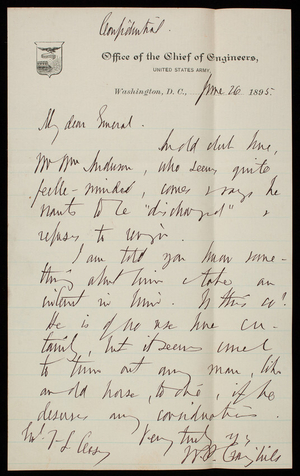 Confidential.
Office of the Chief of Engineers,
UNITED STATES ARMY,
Washington, D.C., June 26 1895.
My dear General.
An old clerk here,
Mr Wm Anderson, who seems quite
feeble-minded, comes & says he
wants to be "discharged" &
refuses to resign.
I am told you know some-
thing about him & take an
interest in him. Is this so?
He is of no use here cer-
tainly, but it seems cruel
to turn out any man, like
an old horse, to die, if he
deserves any consideration.
Very truly yrs
Genl T L Casey W. P. Craighill